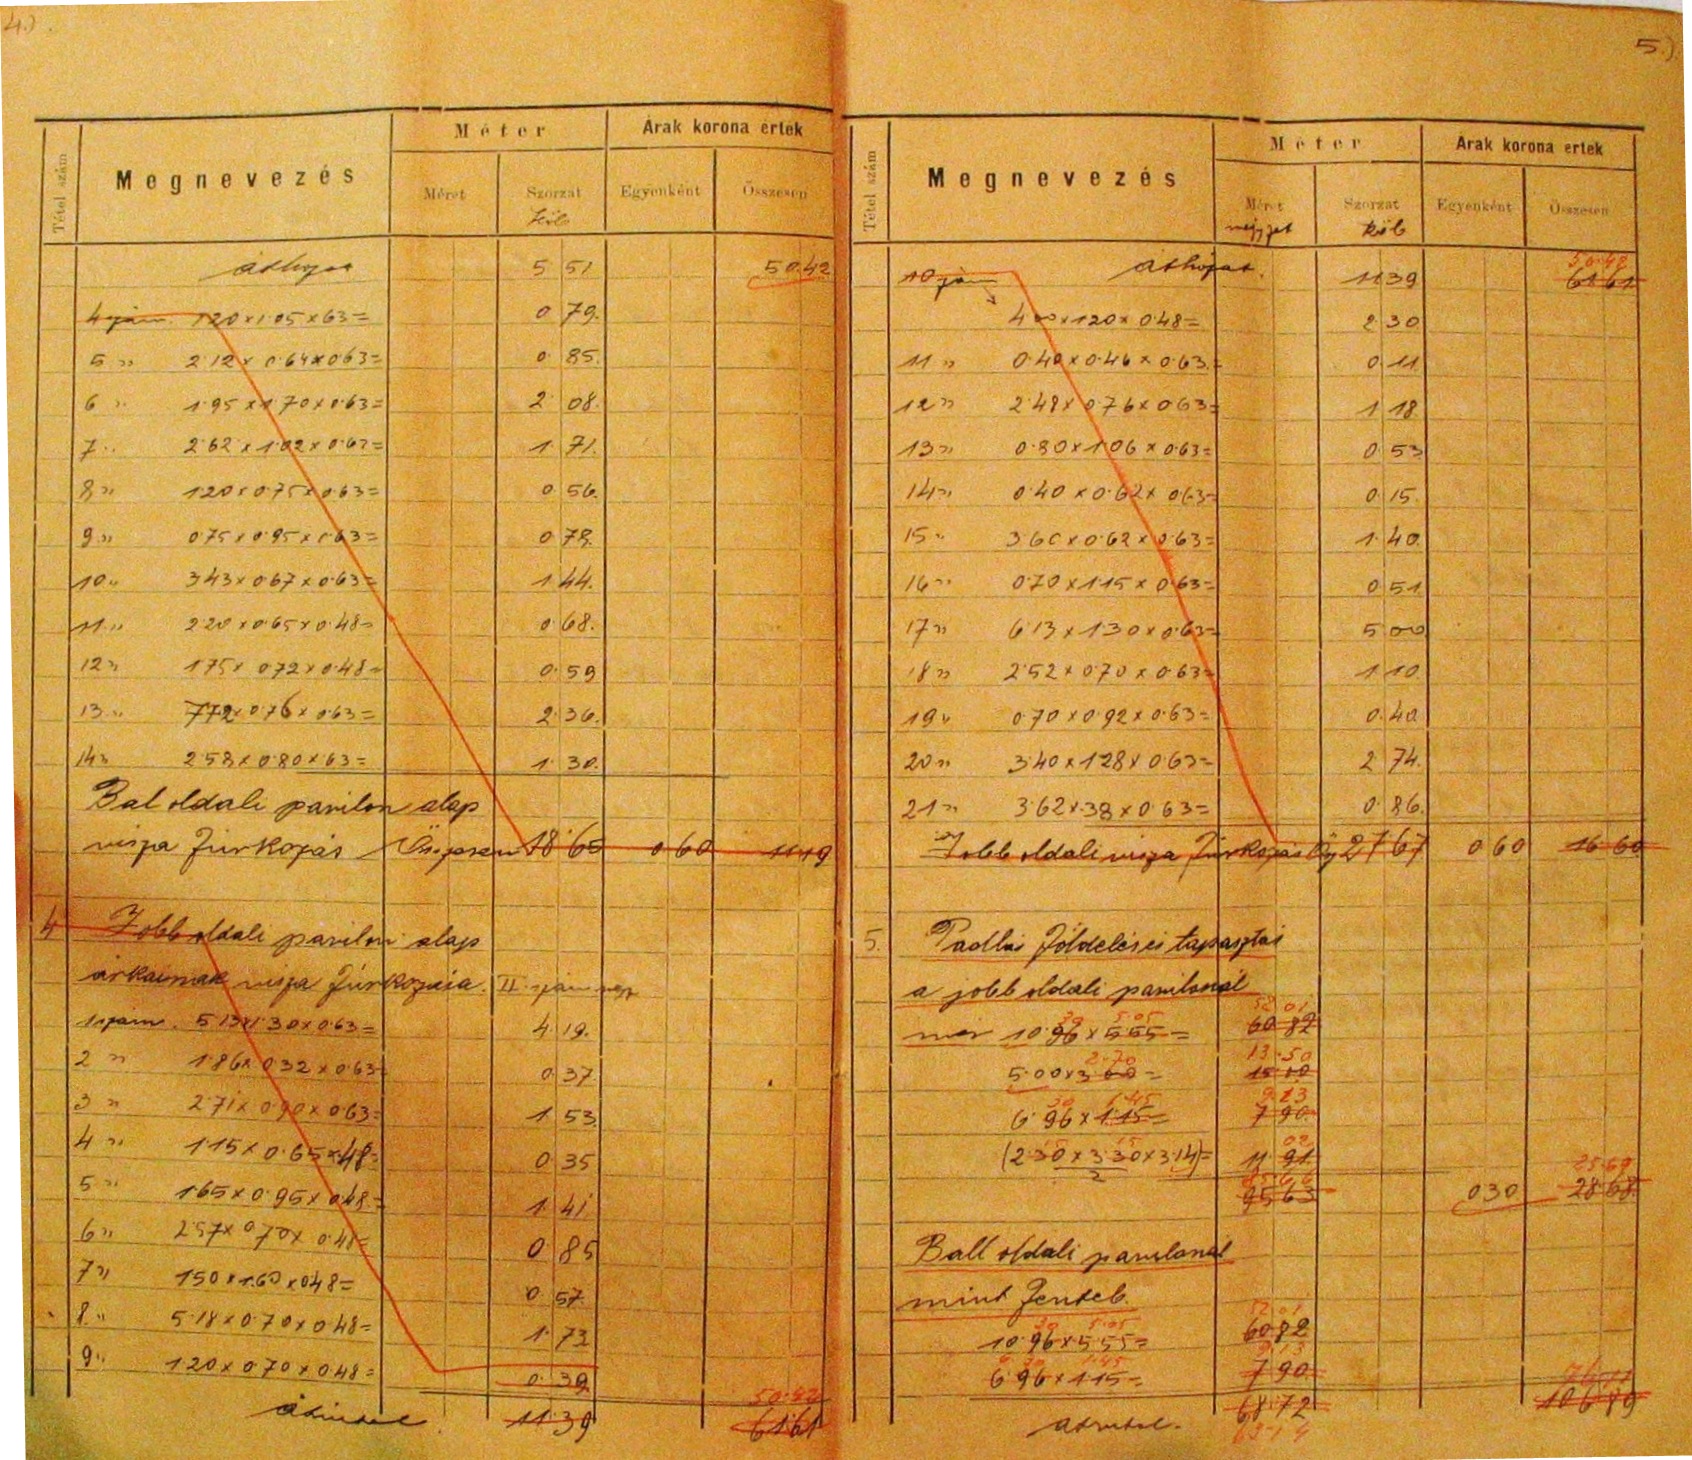 4.)
Tétel szám
Megnevezés
Méter
Árak korona érték
Méret
Szorzat
Egyenként
Összesen
köb
áthozat 5 51 50.42
4 szám. 1·20×1·05×63= 0 79.
5 " 2·12×0·64×0·63= 0 85.
6 " 1·95×1·70×0·63= 2 08.
7 " 2·62×1·02×0·63= 1 71.
8 " 1·20×0·75×0·63= 0 56.
9 " 0·75×0·95×0·63= 0 78.
10 " 3·43×0·67×0·63= 1 44.
11 " 2·20×0·65×0·48= 0 68.
12 " 1·75×0·72×0·48= 0 59
13 " 0·76×0·63= 2 36.
14 " 2·58×0·80×63= 1 30.
Bal oldali pavilon alap
vissza 18 65 0 60 11 19
4 Jobb oldali pavilon alap
árkainak vissza II. szám
1 szám. 5·13×1·30×0·63= 4 19.
2 " 1·86×0·32×0·63= 0 37
3 " 2·71×0·90×0·63= 1 53
4 " 1·15×0·65×48= 0 35
5 " 1·65×0·95×0·48= 1 41
6 " 2·57×0·70×0·48= 0 85
7 " 1·50×1·60×0·48= 0 57
8 " 5·18×0·70×0·48= 1 73
9 " 1·20×0·70×0·48= 0 39
50.42
átvitel 11 39 61 61
5.)
Tétel szám
Megnevezés
Méter
Árak korona érték
Méret
Szorzat
Egyenként
Összesen
négyzet
köb
50·42
10 szám áthozat. 11 39 61 61
4·00×1·20×0·48= 2 30
11 " 0·40×0·46×0·63= 0 11
12 " 2·48×0·76×0·63= 1 18
13 " 0·80×1·06×0·63= 0 53
14 " 0·40×0·62×0·63= 0 15.
15 " 3·60×0·62×0·63= 1 40.
16 " 0·70×1·15×0·63= 0 51
17 " 6·13×1·30×0·63= 5 00
18 " 2·52×0·70×0·63= 1 10
19 " 0·70×0·92×0·63= 0 40
20 " 3·40×1·28×0·63= 2 74.
21 " 3·62×·38×0·63= 0 86.
Jobb oldali vissza 27 67 0 60 16 60
5. Padlás tapasztás
a jobb oldali pavilonál
30 5.05 52 01
10·96×5·55= 60 82
2·70 13·50
5·00×3·00= 15 00
30 1·45 9 13
6·96×1·15= 7 90
(2·30×3·30×3·14)= 11 91
2
25·69
95 63 0 30 28 68
Ball oldali pavilonál
mint fenteb.
30 5.05 52 01
10·96×5·55= 60 82
6·30 1·45 9 13
6·96×1·15= 7 90
76 11
68 72 106 89
átvitel.